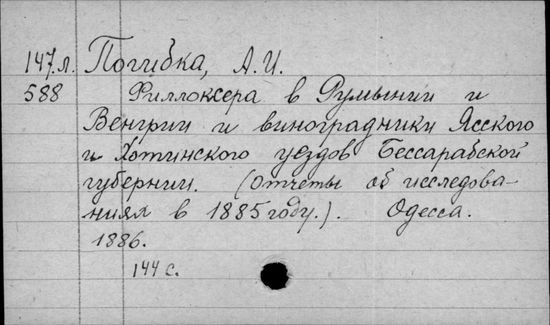 147.л. Погибка, А.И.
588 Филлоксера в Румынии и
Венгрии и виноградники Ясского
и Хотинского уездов Бессарабской
губернии. (Отчеты об исследова-
ниях в 1885 году.). Одесса.
1886.
144 с.